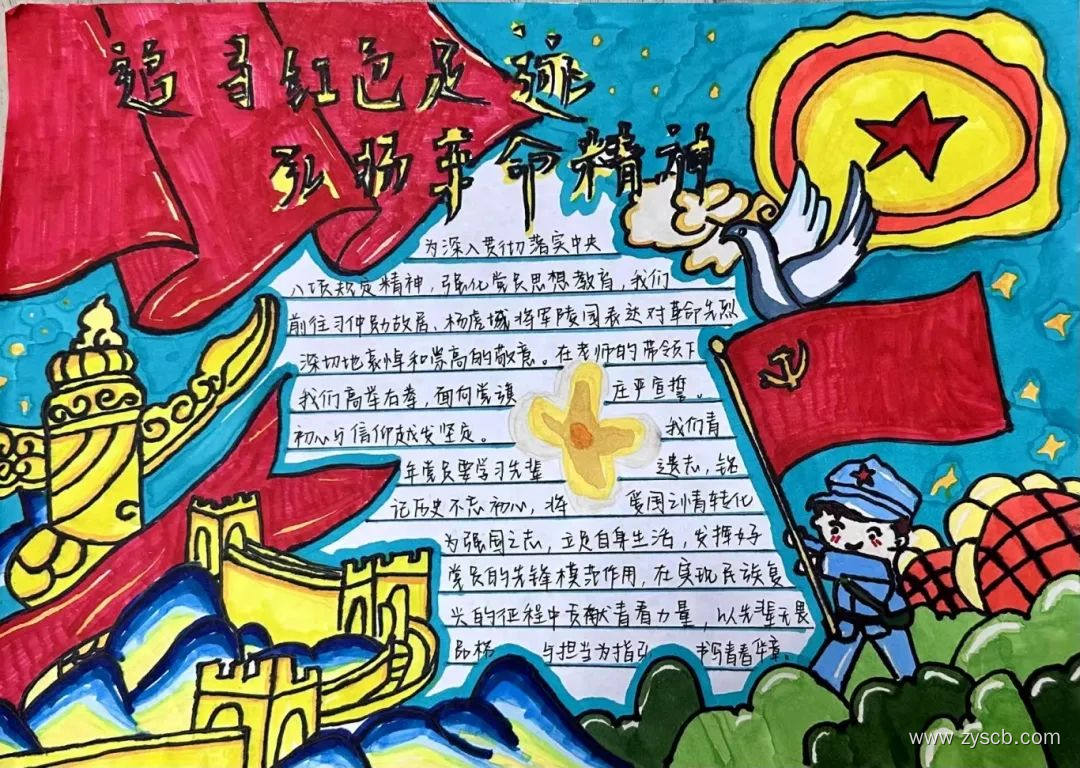 追寻红色足迹
弘扬革命精神
为深入贯彻落实中央
八项规定精神，强化党员思想教育，我们
前往习仲勋故居、杨虎城将军陵园表达对革命先烈
深切地哀悼和崇高的敬意。在老师的带领下
我们高举右拳，面向党旗 庄严宣誓。
初心与信仰越发坚定。 我们青
年党员要学习先辈 遗志，铭
记历史不忘初心，将 爱国之情转化
为强国之志，立足自身生活，发挥好
党员的先锋模范作用，在实现民族复
兴的征程中贡献青春力量，以先辈无畏
与担当为指引 书写青春华章。
www.zyscb.com